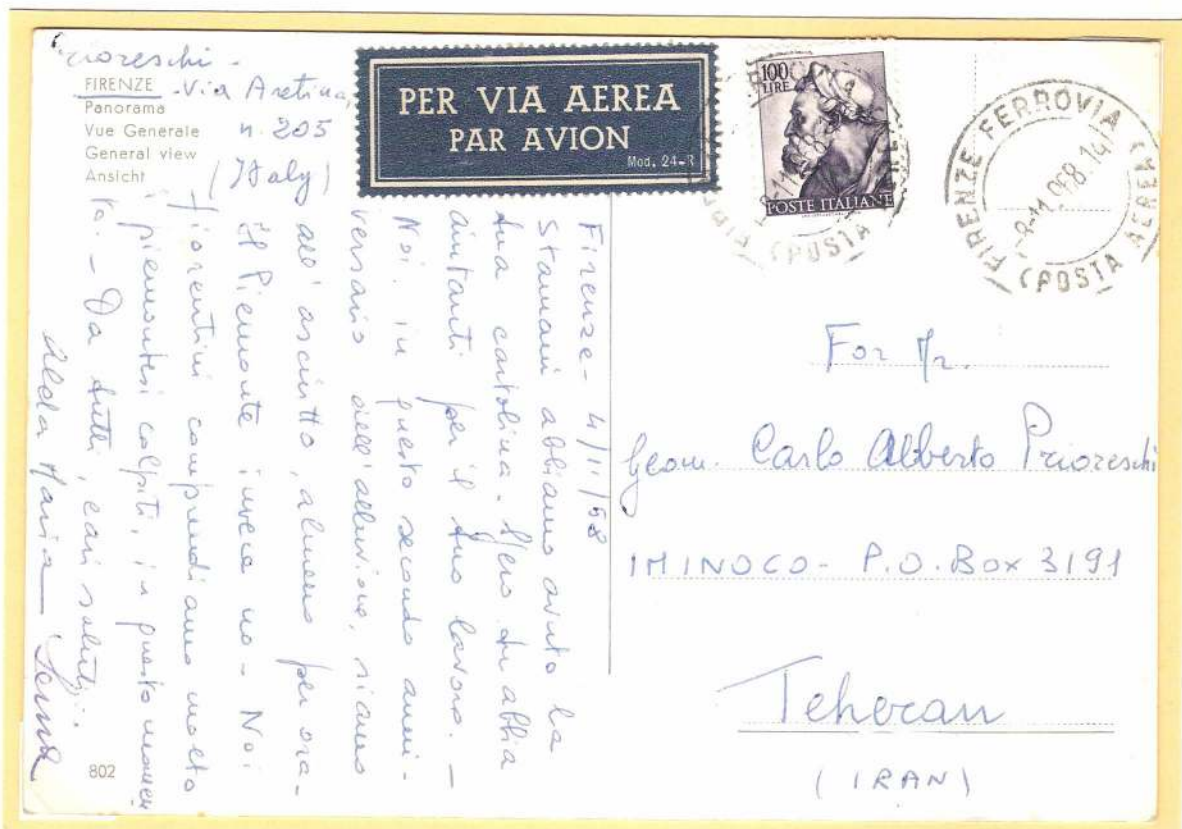 Prioreschi -
FIRENZE - Via Aretina,
Panorama
Vue Generale n. 205
General view
Ansicht (Italy)
PER VIA AEREA
PAR AVION
Mod. 24-R
100
LIRE
POSTE ITALIANE
(POSTA
FIRENZE FERROVIA
(POSTA AEREA)
Firenze - 4/11/68
Stamani abbiamo avuto la
tua cartolina. Spero tu abbia
aiutanti per il tuo lavoro. -
Noi in questo secondo anni-
versario dell'alluvione, siamo
all'asciutto, almeno per ora -
il Piemonte invece no - Noi
fiorentini comprendiamo molto
i piemontesi colpiti, in questo momen
to. - Da tutti, cari saluti.
Alda Maria
802
For Mr.
Geom. Carlo Alberto Prioreschi
IMINOCO - P.O. Box 3191
Teheran
(IRAN)